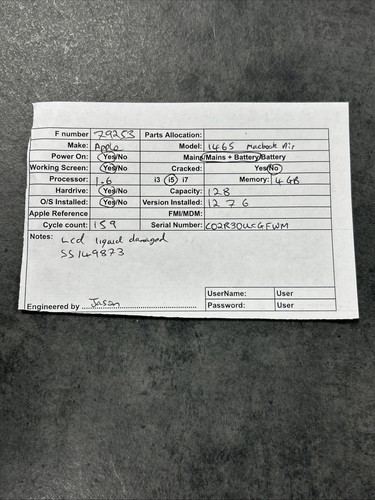 F number 79253 Parts Allocation:
Make: Apple Model: 1465 Macbook Air
Power On: Yes/No Mains/Mains + Battery/Battery
Working Screen: Yes/No Cracked: Yes/No
Processor: 1.6 i3 i5 i7 Memory: 4 GB
Hardrive: Yes/No Capacity: 128
O/S Installed: Yes/No Version Installed: 12 7 6
Apple Reference FMI/MDM:
Cycle count: 159 Serial Number:
Notes: Lcd liquid damaged
SS149873
UserName: User
Password: User
Engineered by Jason